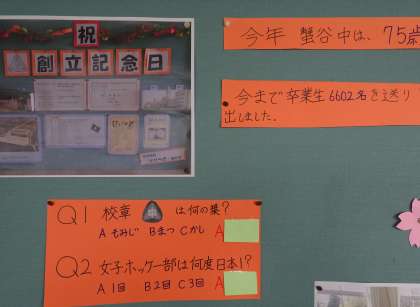 祝
創立記念日
今年 蟹谷中は、75歳
今まで卒業生6602名を送り
出しました。
Q1 校章 は何の葉?
A もみじ B まつ C かし A
Q2 女子ホッケー部は何度日本1?
A 1回 B 2回 C 3回 A